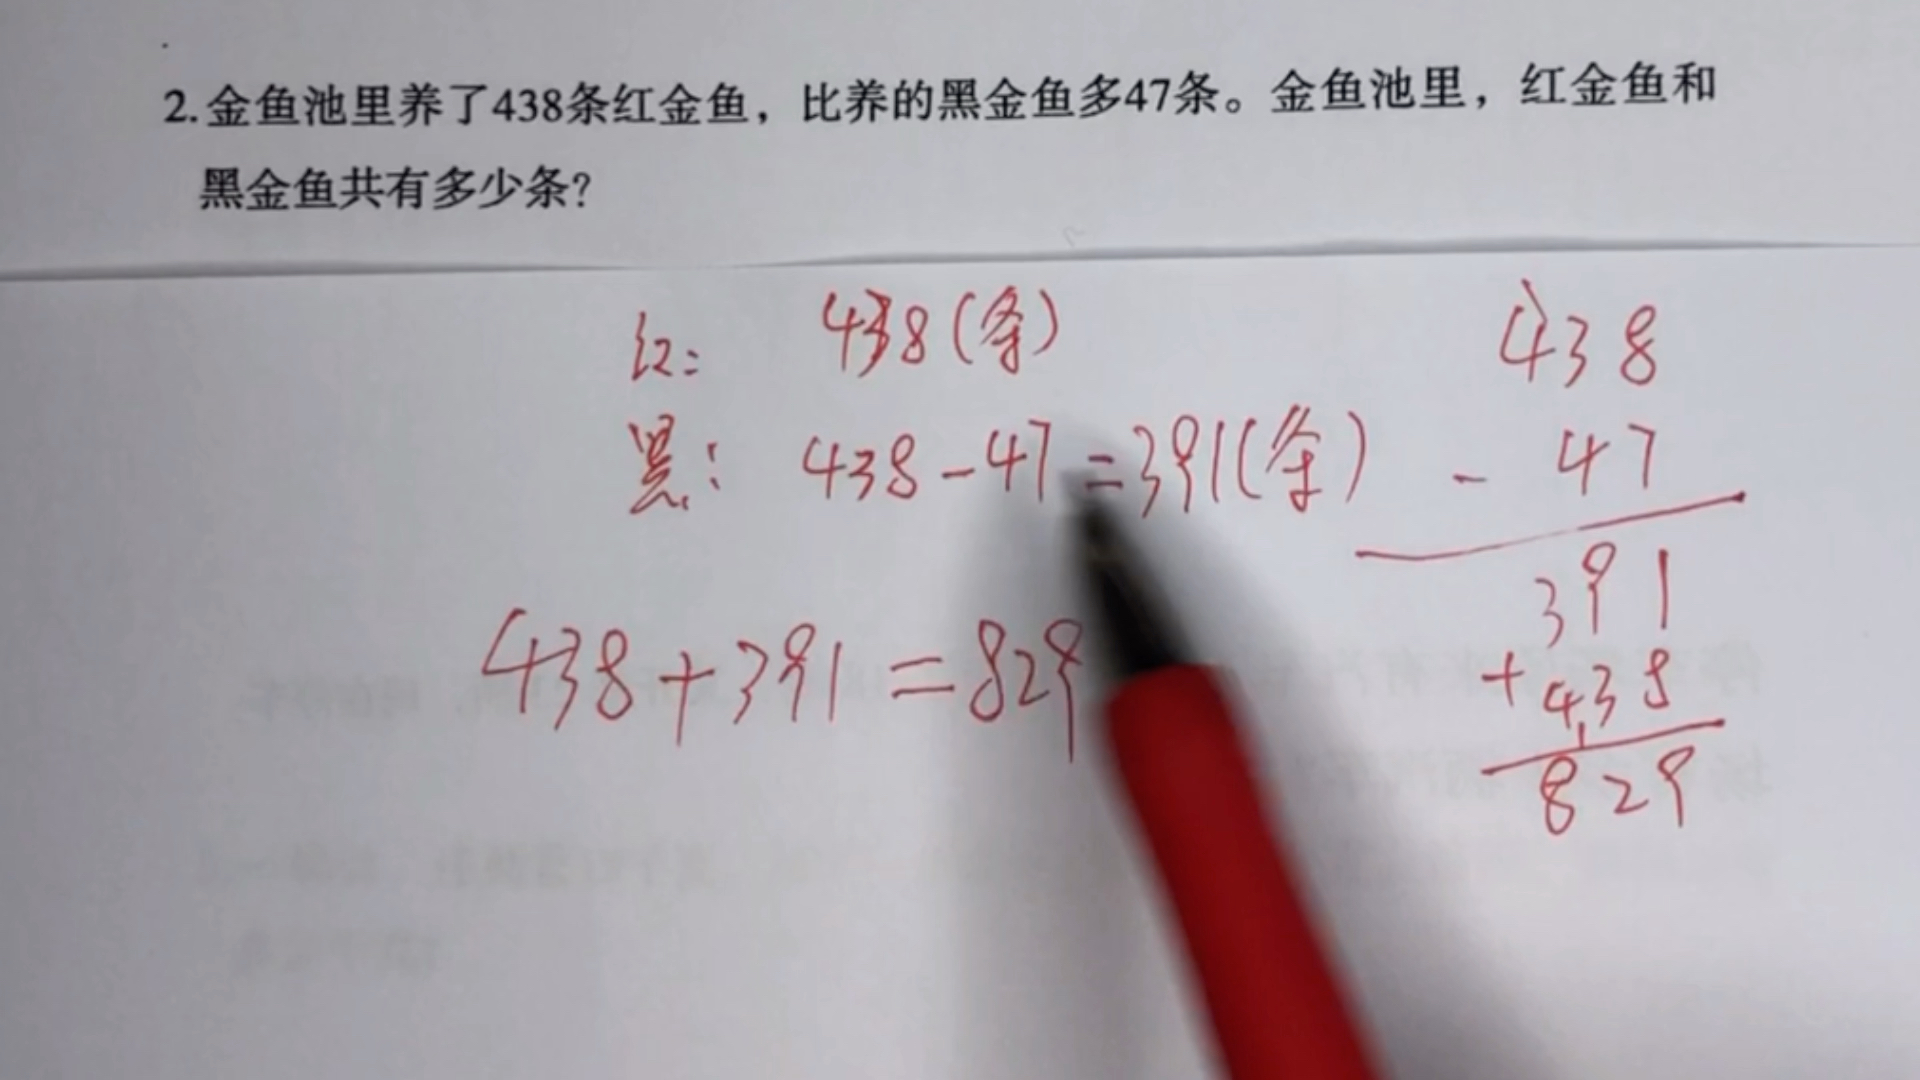 2.金鱼池里养了438条红金鱼，比养的黑金鱼多47条。金鱼池里，红金鱼和
黑金鱼共有多少条？
红: 438(条)
黑: 438-47=391(条)
438+391=829
438
- 47
391
+ 438
1
829